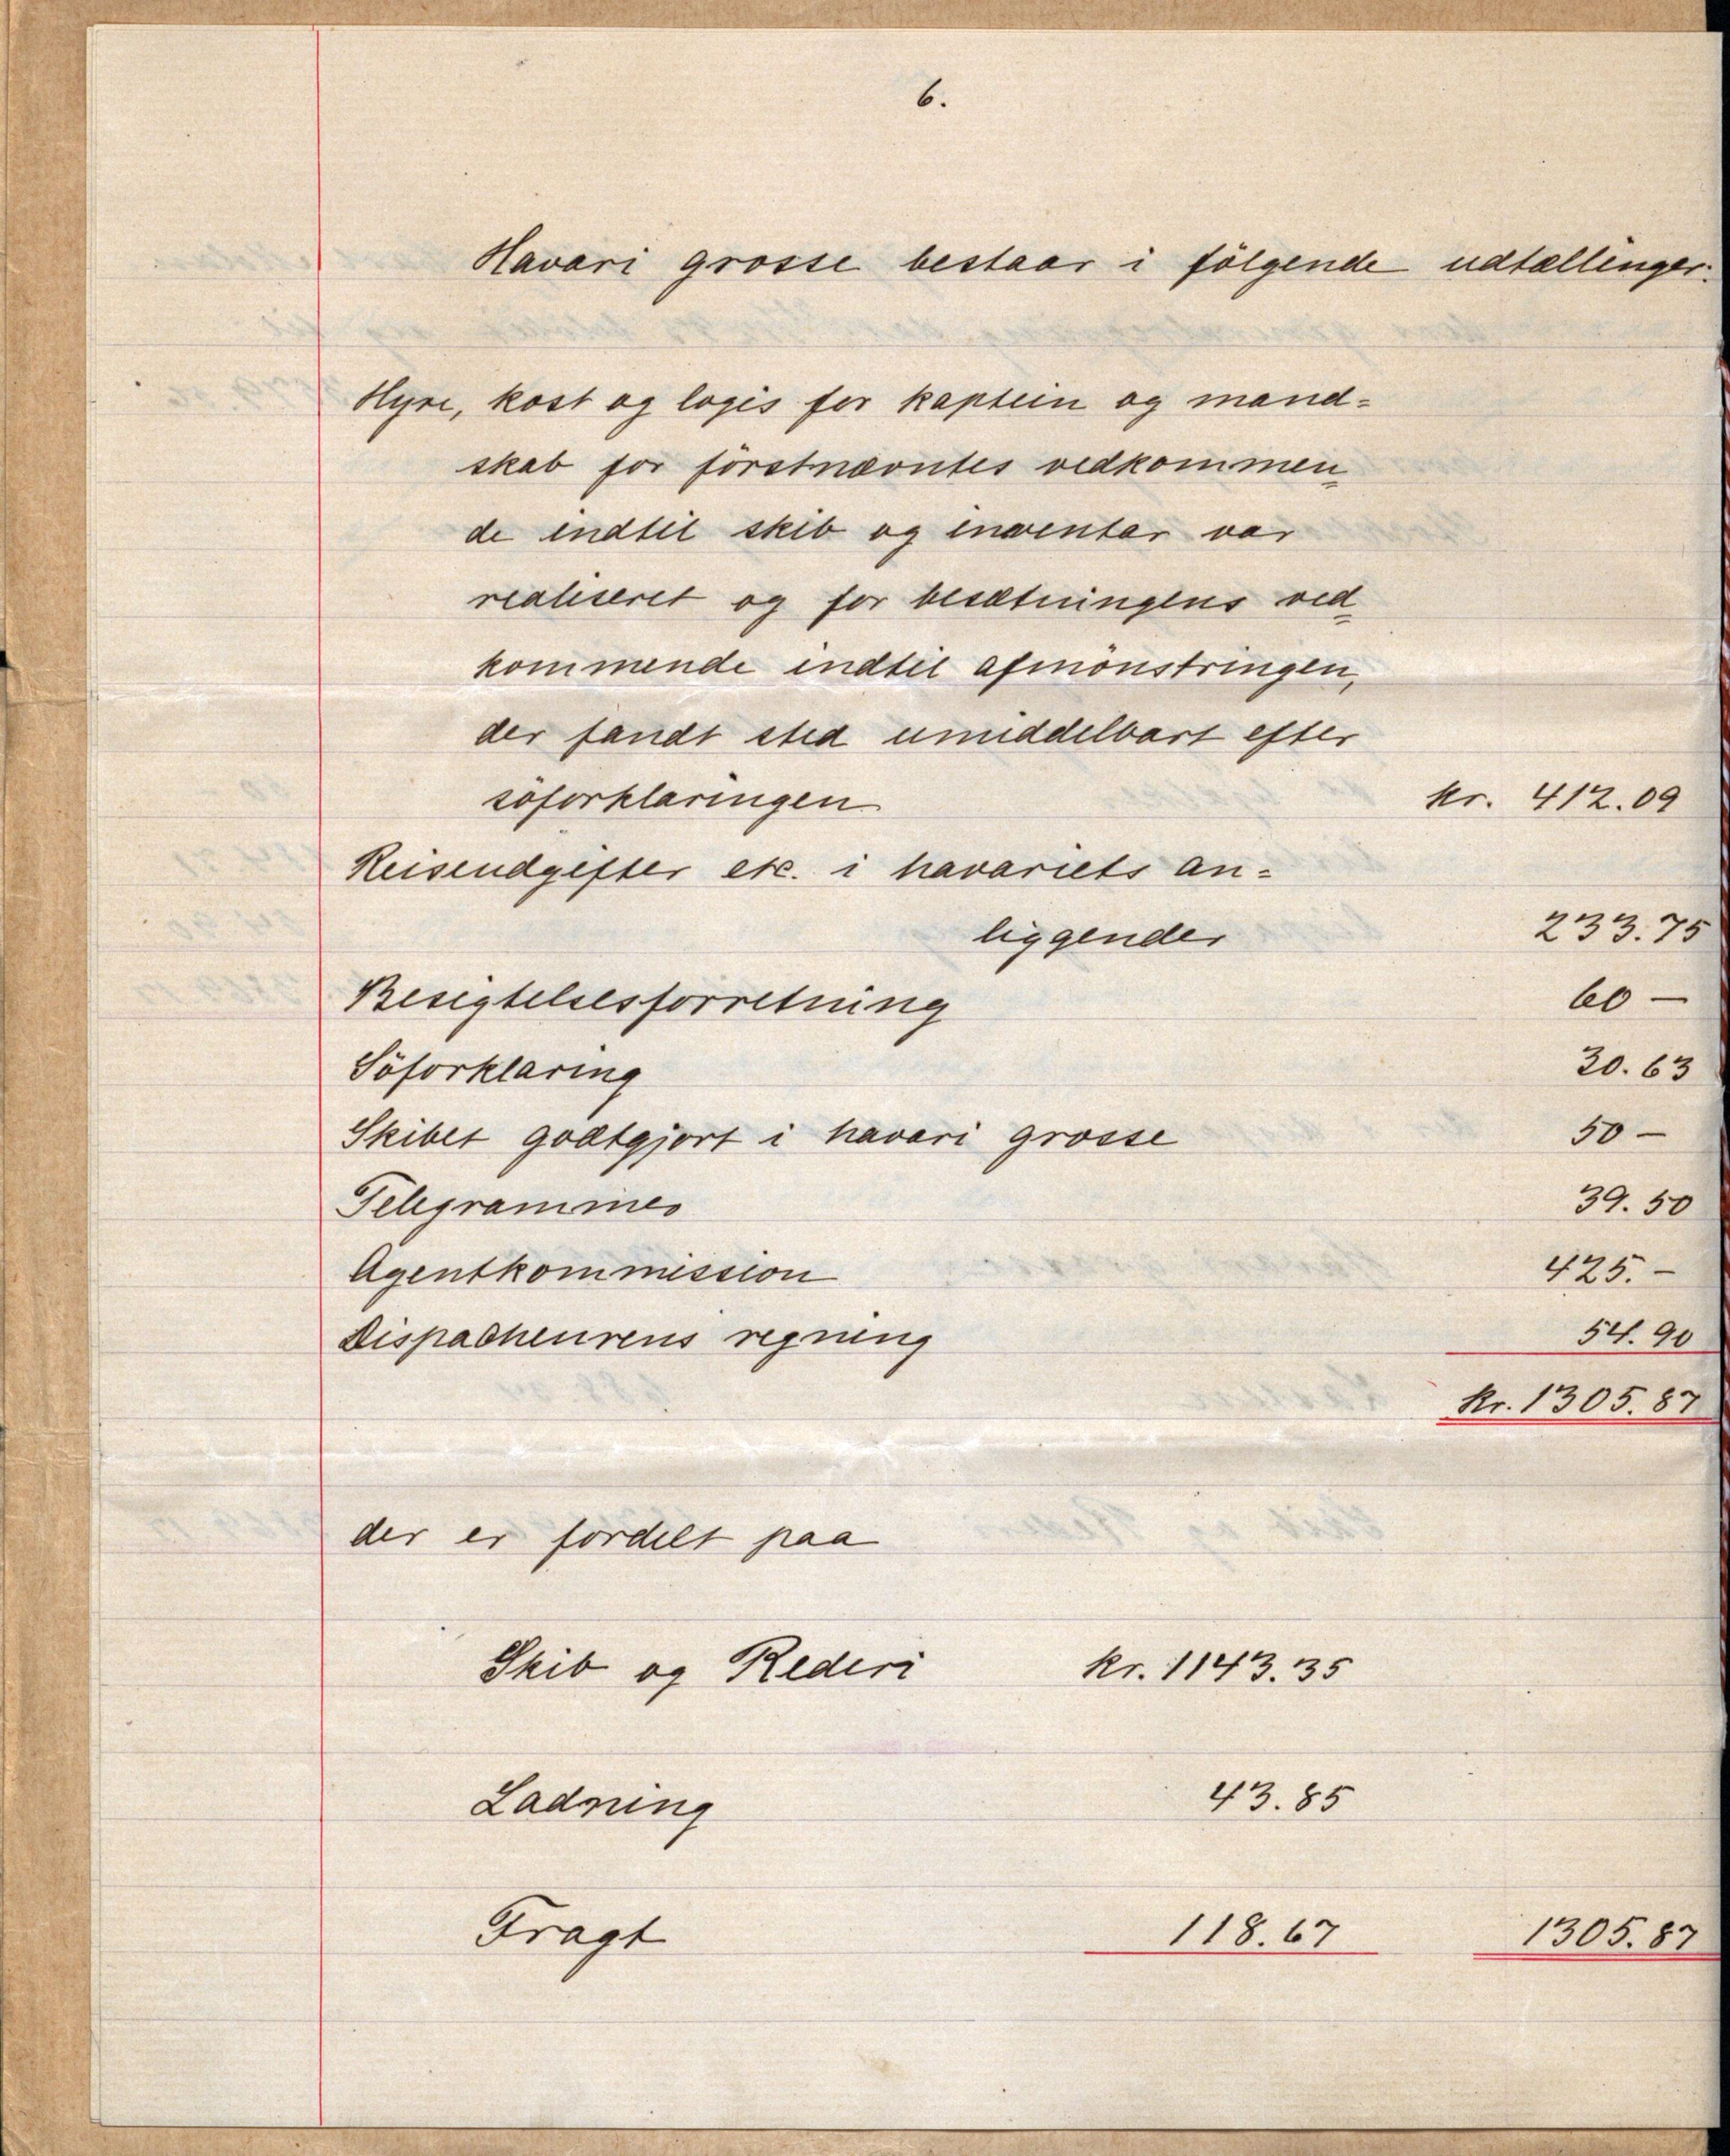 6.
Havari grosse bestaar i följgende udtællinger:
Hyre, kost og logis for kaptein og mand=
skab for förstnævntes vedkommen=
de indtil skib og inventar var
realiseret og for besætningens ved=
kommende indtil afmönstringen,
der fandt sted umiddelbart efter
söforklaringen kr. 412.09
Reiseudgifter etc. i havariets an=
liggender 233.75
Besigtelsesforretning 60 —
Söforklaring 30.63
Skibet godtgjort i havari grosse 50 —
Telegrammer 39.50
Agentkommission 425. —
Dispacheurens regning 54.90
kr. 1305.87
der er fordelt paa
Skib og Rederi kr. 1143.35
Ladning 43.85
Fragt 118.67 1305.87